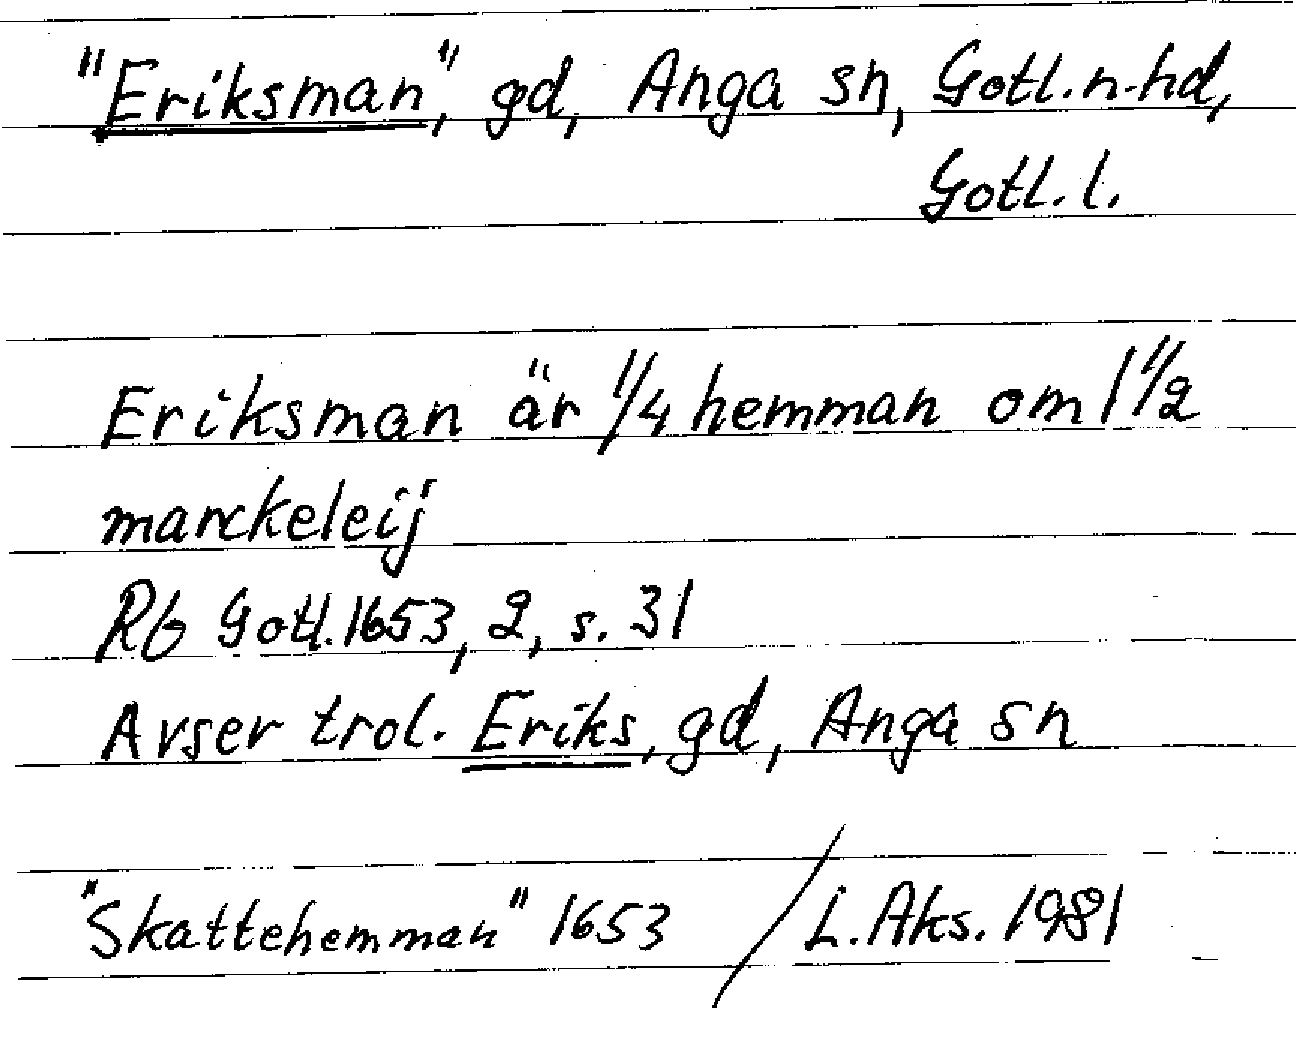 "Eriksman", gd, Anga sn, Gotl. n. hd,
Gotl. l.
Eriksman är 1/4 hemman om 1 1/2
marckeleij
Rb Gotl. 1653, 2, s. 31
Avser trol. Eriks, gd, Anga sn
"Skattehemman" 1653 / L. Aks. 1981